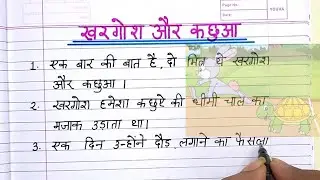 खरगोश और कछुआ
1. एक बार की बात है, दो मित्र थे खरगोश
और कछुआ ।
2. खरगोश हमेशा कछुऐ की धीमी चाल का
मजाक उड़ाता था।
3. एक दिन उन्होंने दौड़ लगाने का फैसला